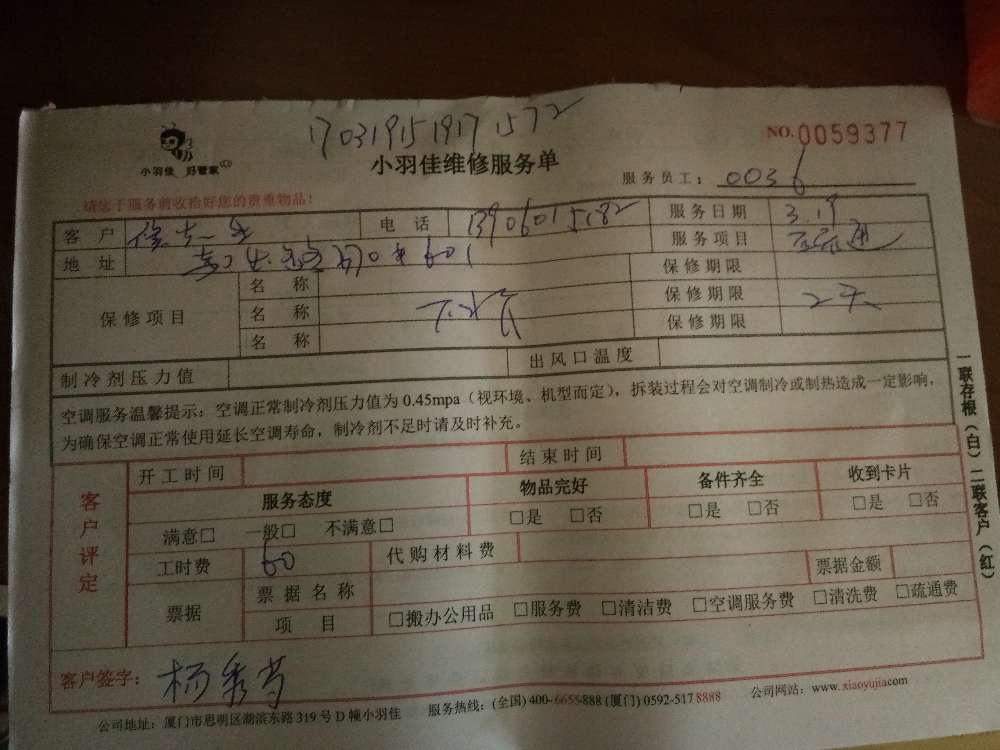 1703191519171572
小羽佳 好管家
小羽佳维修服务单
NO.0059377
服务员工： 0036
请您于服务前收拾好您的贵重物品！
客 户 电 话 服务日期 3.19
地 址 601 服务项目
保修项目 名 称 保修期限
名 称 保修期限 2天
名 称 保修期限
制冷剂压力值 出风口温度
空调服务温馨提示：空调正常制冷剂压力值为 0.45mpa（视环境、机型而定），拆装过程会对空调制冷或制热造成一定影响，
为确保空调正常使用延长空调寿命，制冷剂不足时请及时补充。
客户评定
开工时间 结束时间
服务态度 物品完好 备件齐全 收到卡片
满意□ 一般□ 不满意□ □是 □否 □是 □否 □是 □否
工时费 60 代购材料费
票据 票据名称 票据金额
项 目 □搬办公用品 □服务费 □清洁费 □空调服务费 □清洗费 □疏通费
客户签字： 杨秀芳
公司地址：厦门市思明区湖滨东路 319 号 D 幢小羽佳 服务热线：(全国) 400-6655-888 (厦门) 0592-517 8888 公司网站：www.xiaoyujia.com
一联存根（白）二联客户（红）